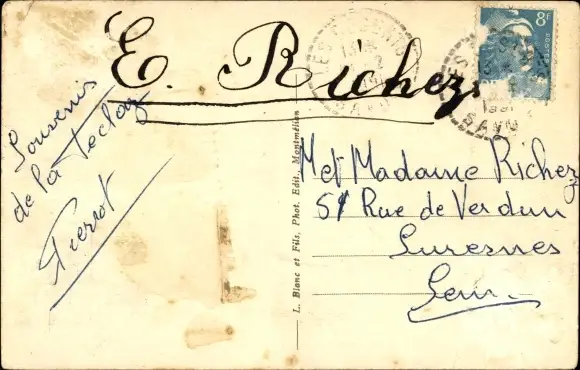 E. Richez
Souvenis
de la Teclaz
Pierrot
L. Blanc et Fils, Phot. Edit., Montmélian
8F
POSTES
M et Madame Richez
51 Rue de Verdun
Suresnes
Seine